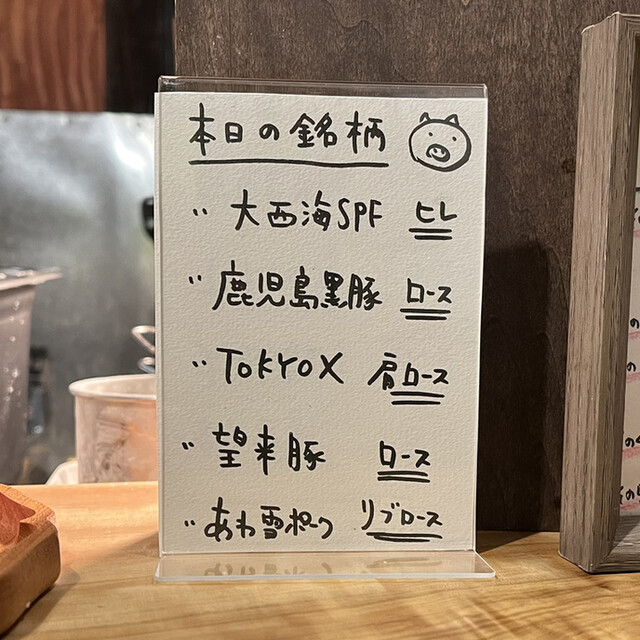 本日の銘柄
〃 大西海SPF ヒレ
〃 鹿児島黒豚 ロース
〃 TOKYO X 肩ロース
〃 望来豚 ロース
〃 あわ雪ポーク リブロース